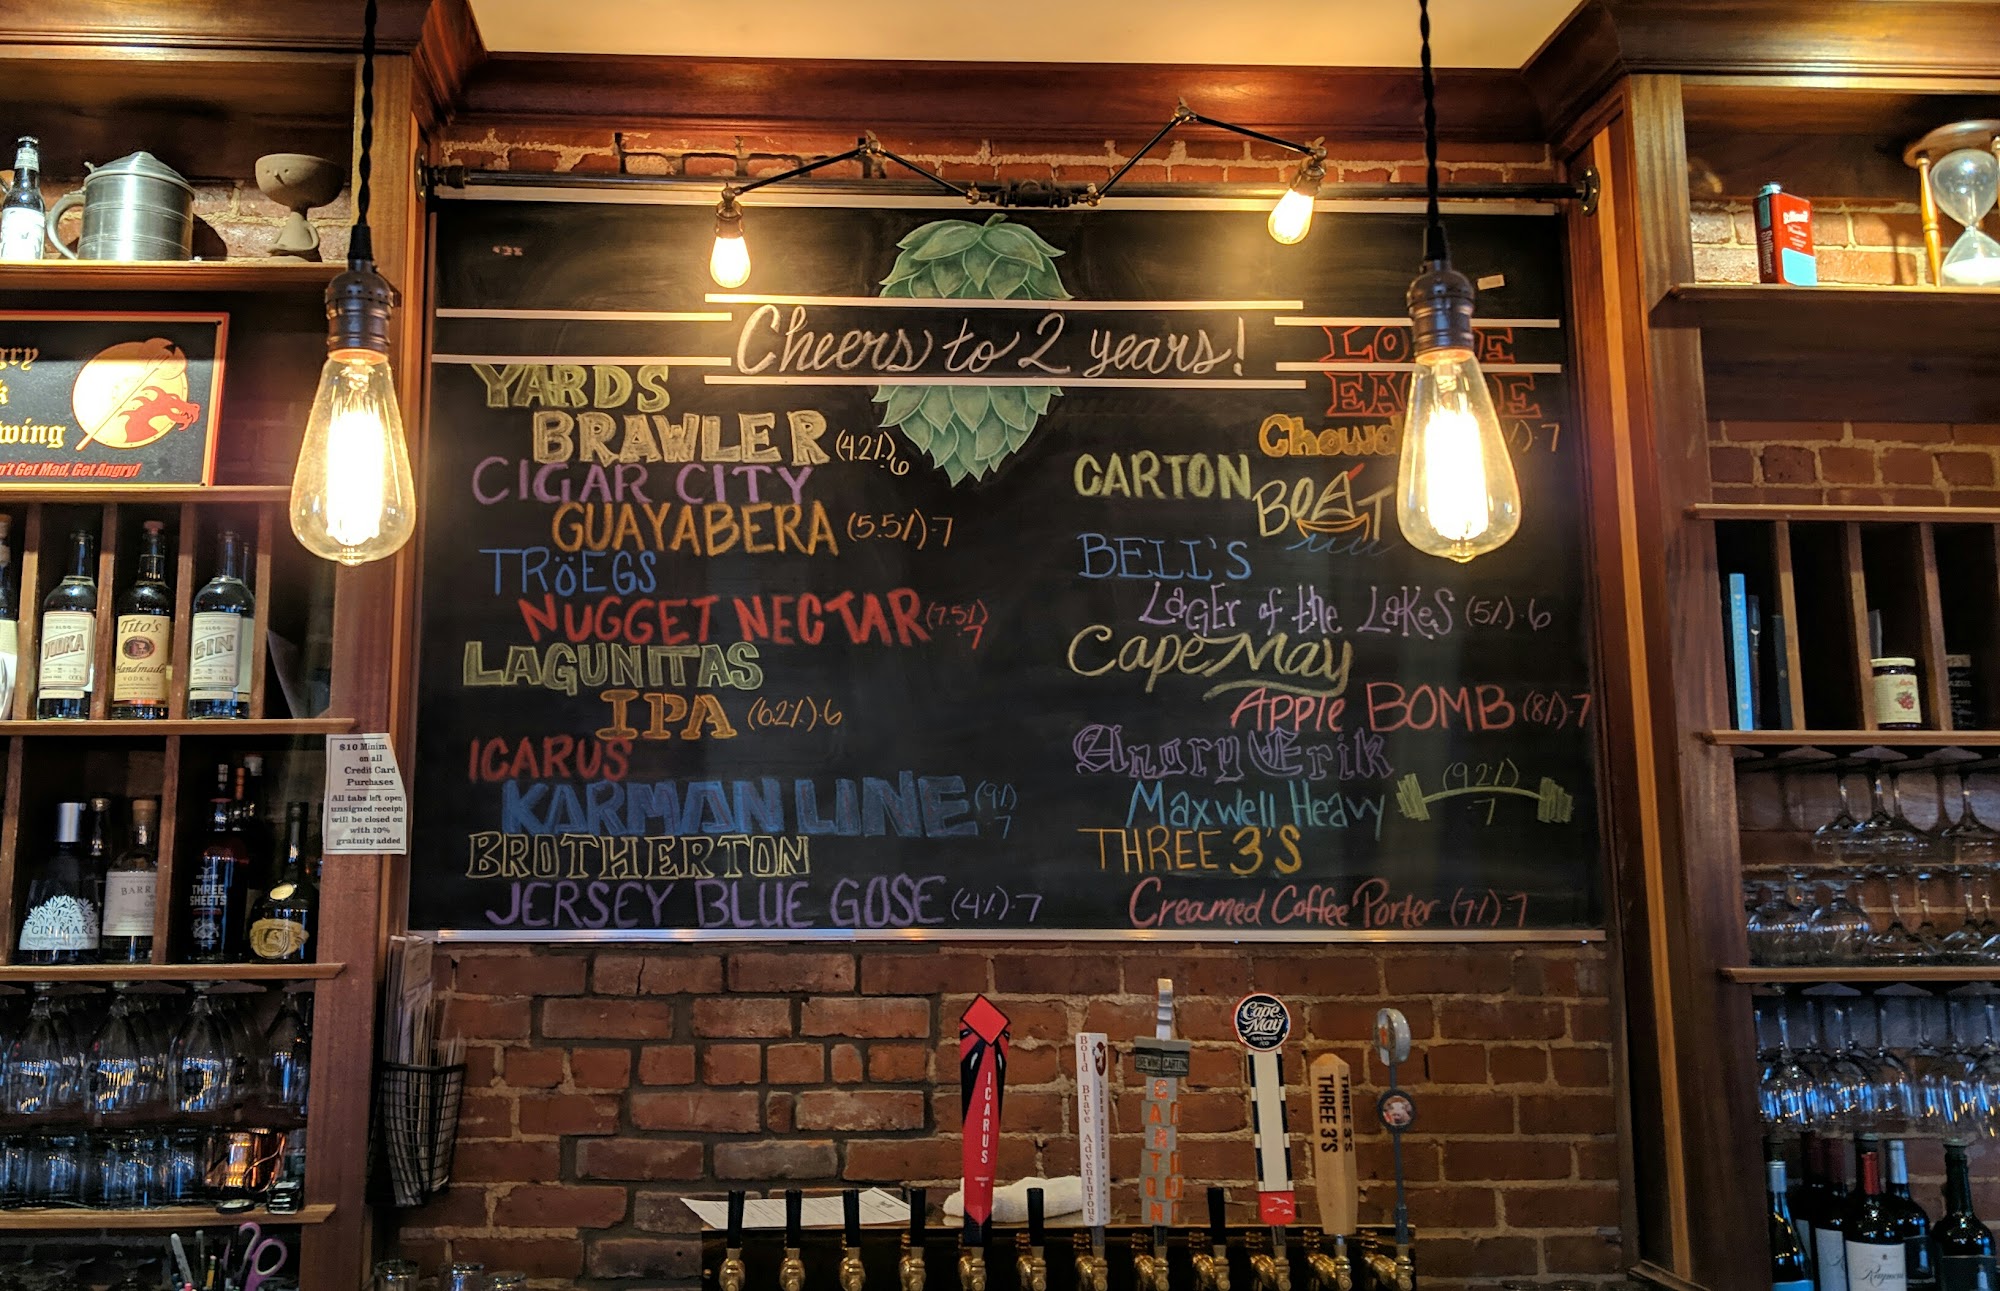 Cheers to 2 years!
YARDS
BRAWLER (4.2%).6
CIGAR CITY
GUAYABERA (5.5%).7
TRöEGS
NUGGET NECTAR (7.5%).7
LAGUNITAS
IPA (6.2%).6
ICARUS
KARMAN LINE (9%) 7
BROTHERTON
JERSEY BLUE GOSE (4%).7
Chowd 7
CARTON
BOAT
BELL'S
LAGER of the LAKES (5%).6
Cape May
APPLE BOMB (8%).7
Angry Erik
Maxwell Heavy (9.2%) 7
THREE 3'S
Creamed Coffee Porter (7%).7
wing
n't Get Mad, Get Angry!
VODKA
Tito's
Handmade
VODKA
GIN
$10 Minim
on all
Credit Card
Purchases
All tabs left open
unsigned receipts
will be closed out
with 20%
gratuity added
GIN MARE
BARR
THREE
SHEETS
ICARUS
Bold Brave Adventurous
CARTON
Cape
May
THREE 3'S
THREE 3'S